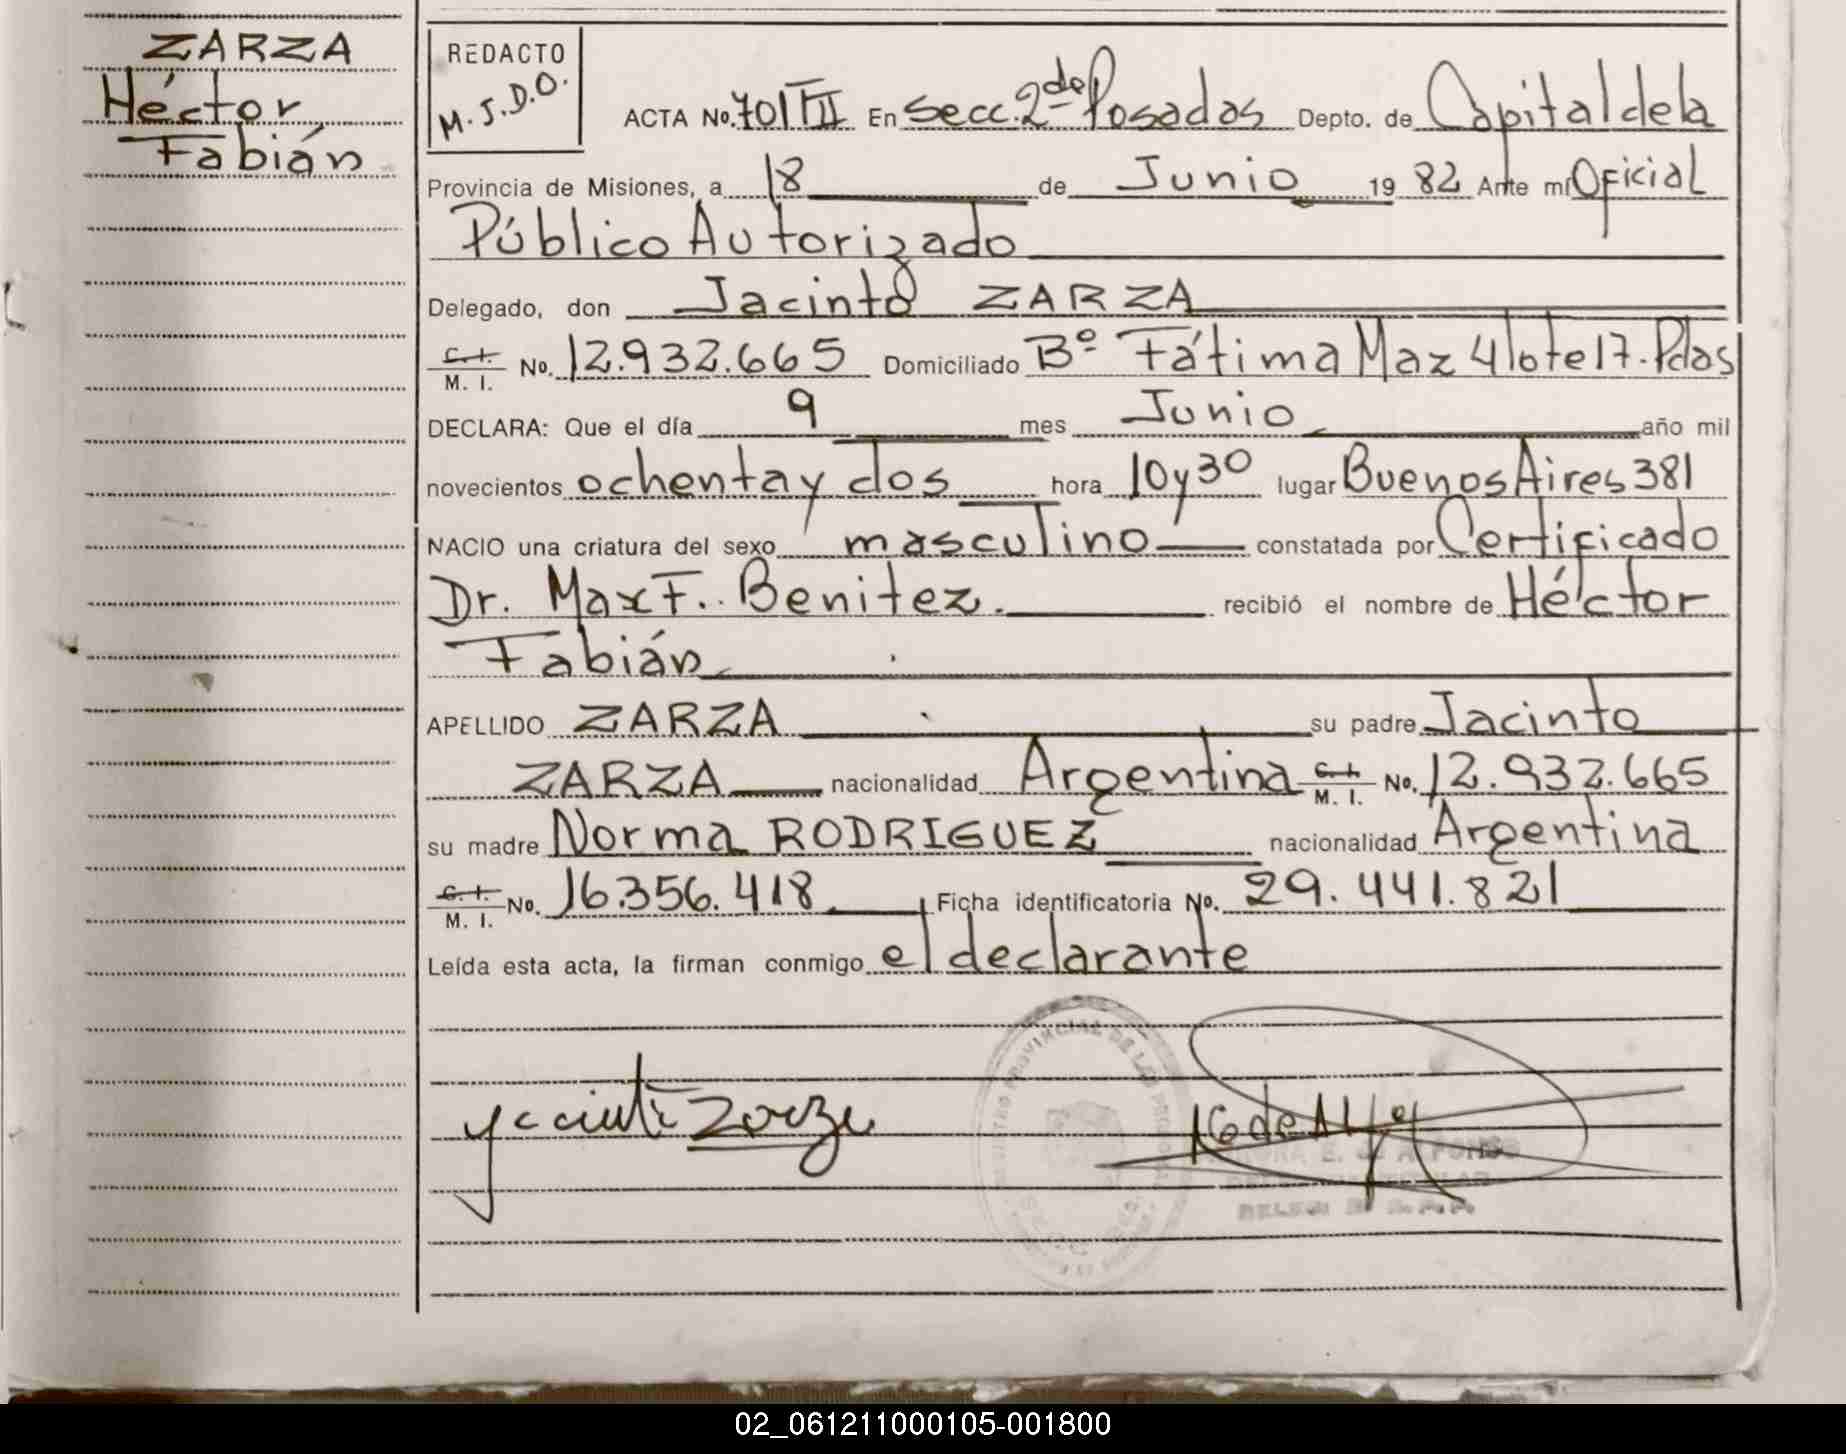 ZARZA
Héctor
Fabián
REDACTO
M.J.D.O.
ACTA No. 701 TII En Secc. 2da Posadas Depto. de Capital de la
Provincia de Misiones, a 18 de Junio 19 82 Ante mí Oficial
Público Autorizado
Delegado, don Jacinto ZARZA
C. I.
M. I. No. 12.932.665 Domiciliado Bº Fátima Maz 4 lote 17. Pdas
DECLARA: Que el día 9 mes Junio año mil
novecientos ochenta y dos hora 10 y 30 lugar Buenos Aires 381
NACIO una criatura del sexo masculino constatada por Certificado
Dr. Max F. Benitez. recibió el nombre de Héctor
Fabián
APELLIDO ZARZA su padre Jacinto
ZARZA nacionalidad Argentina C. I. M. I. No. 12.932.665
su madre Norma RODRIGUEZ nacionalidad Argentina
C. I. M. I. No. 16.356.418 Ficha identificatoria No. 29.441.821
Leída esta acta, la firman conmigo el declarante
02_061211000105-001800